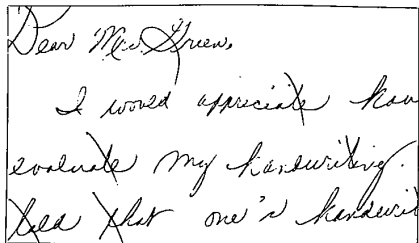 Dear Green,
I would appreciate hav
evaluate my handwriting.
told that one's handwrit